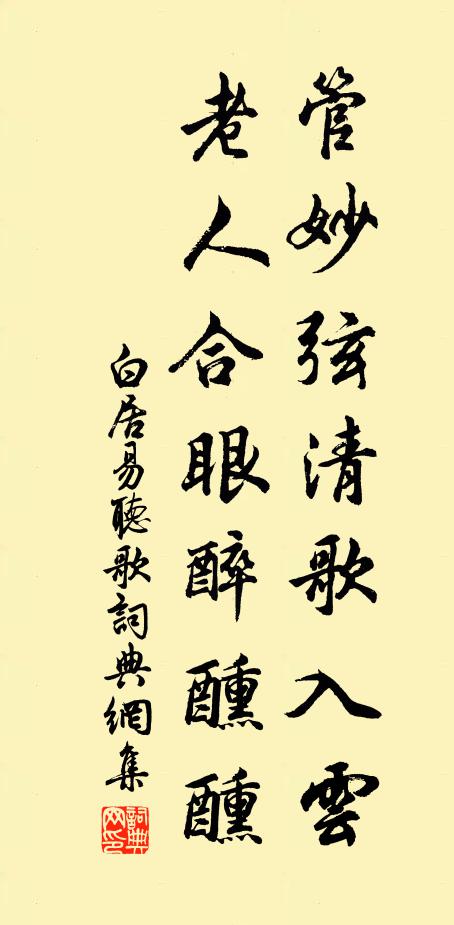 管妙弦清歌入雲
老人合眼醉醺醺
白居易聽歌詞典網集
詞典網印